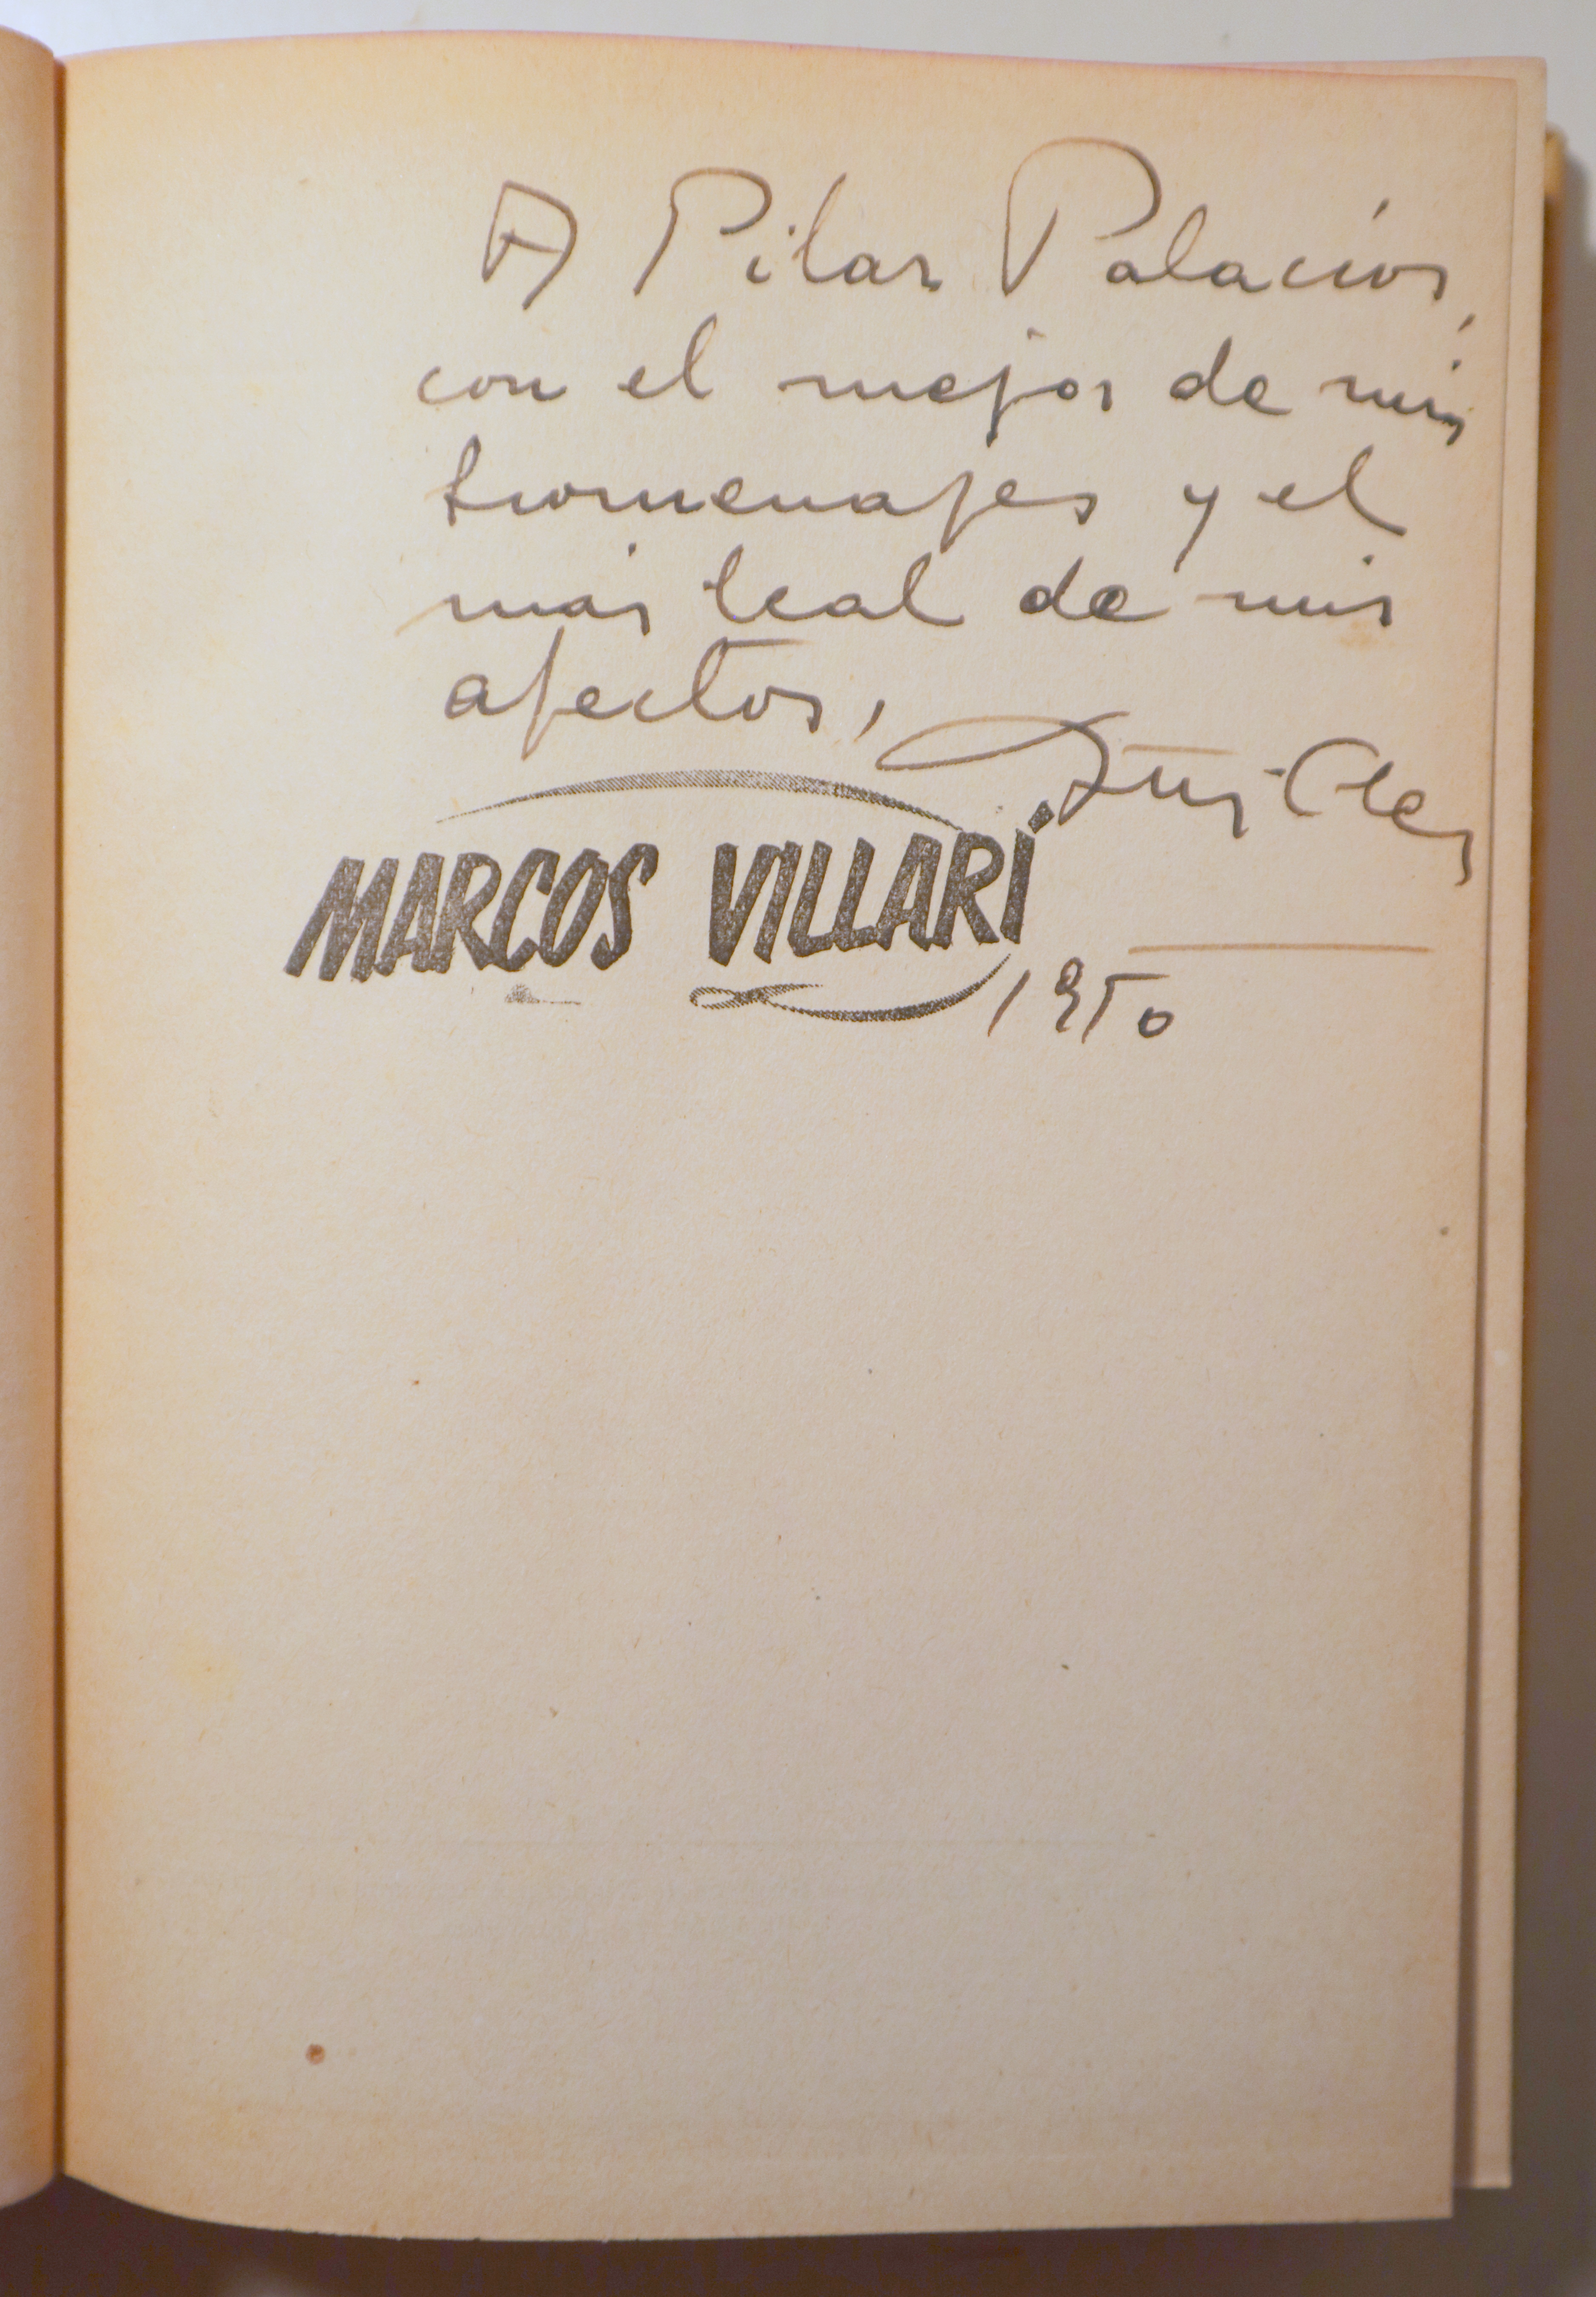 A Pilar Palacios,
con el mejor de mis
homenajes y el
más leal de mis
afectos,
MARCOS VILLARÍ
1950